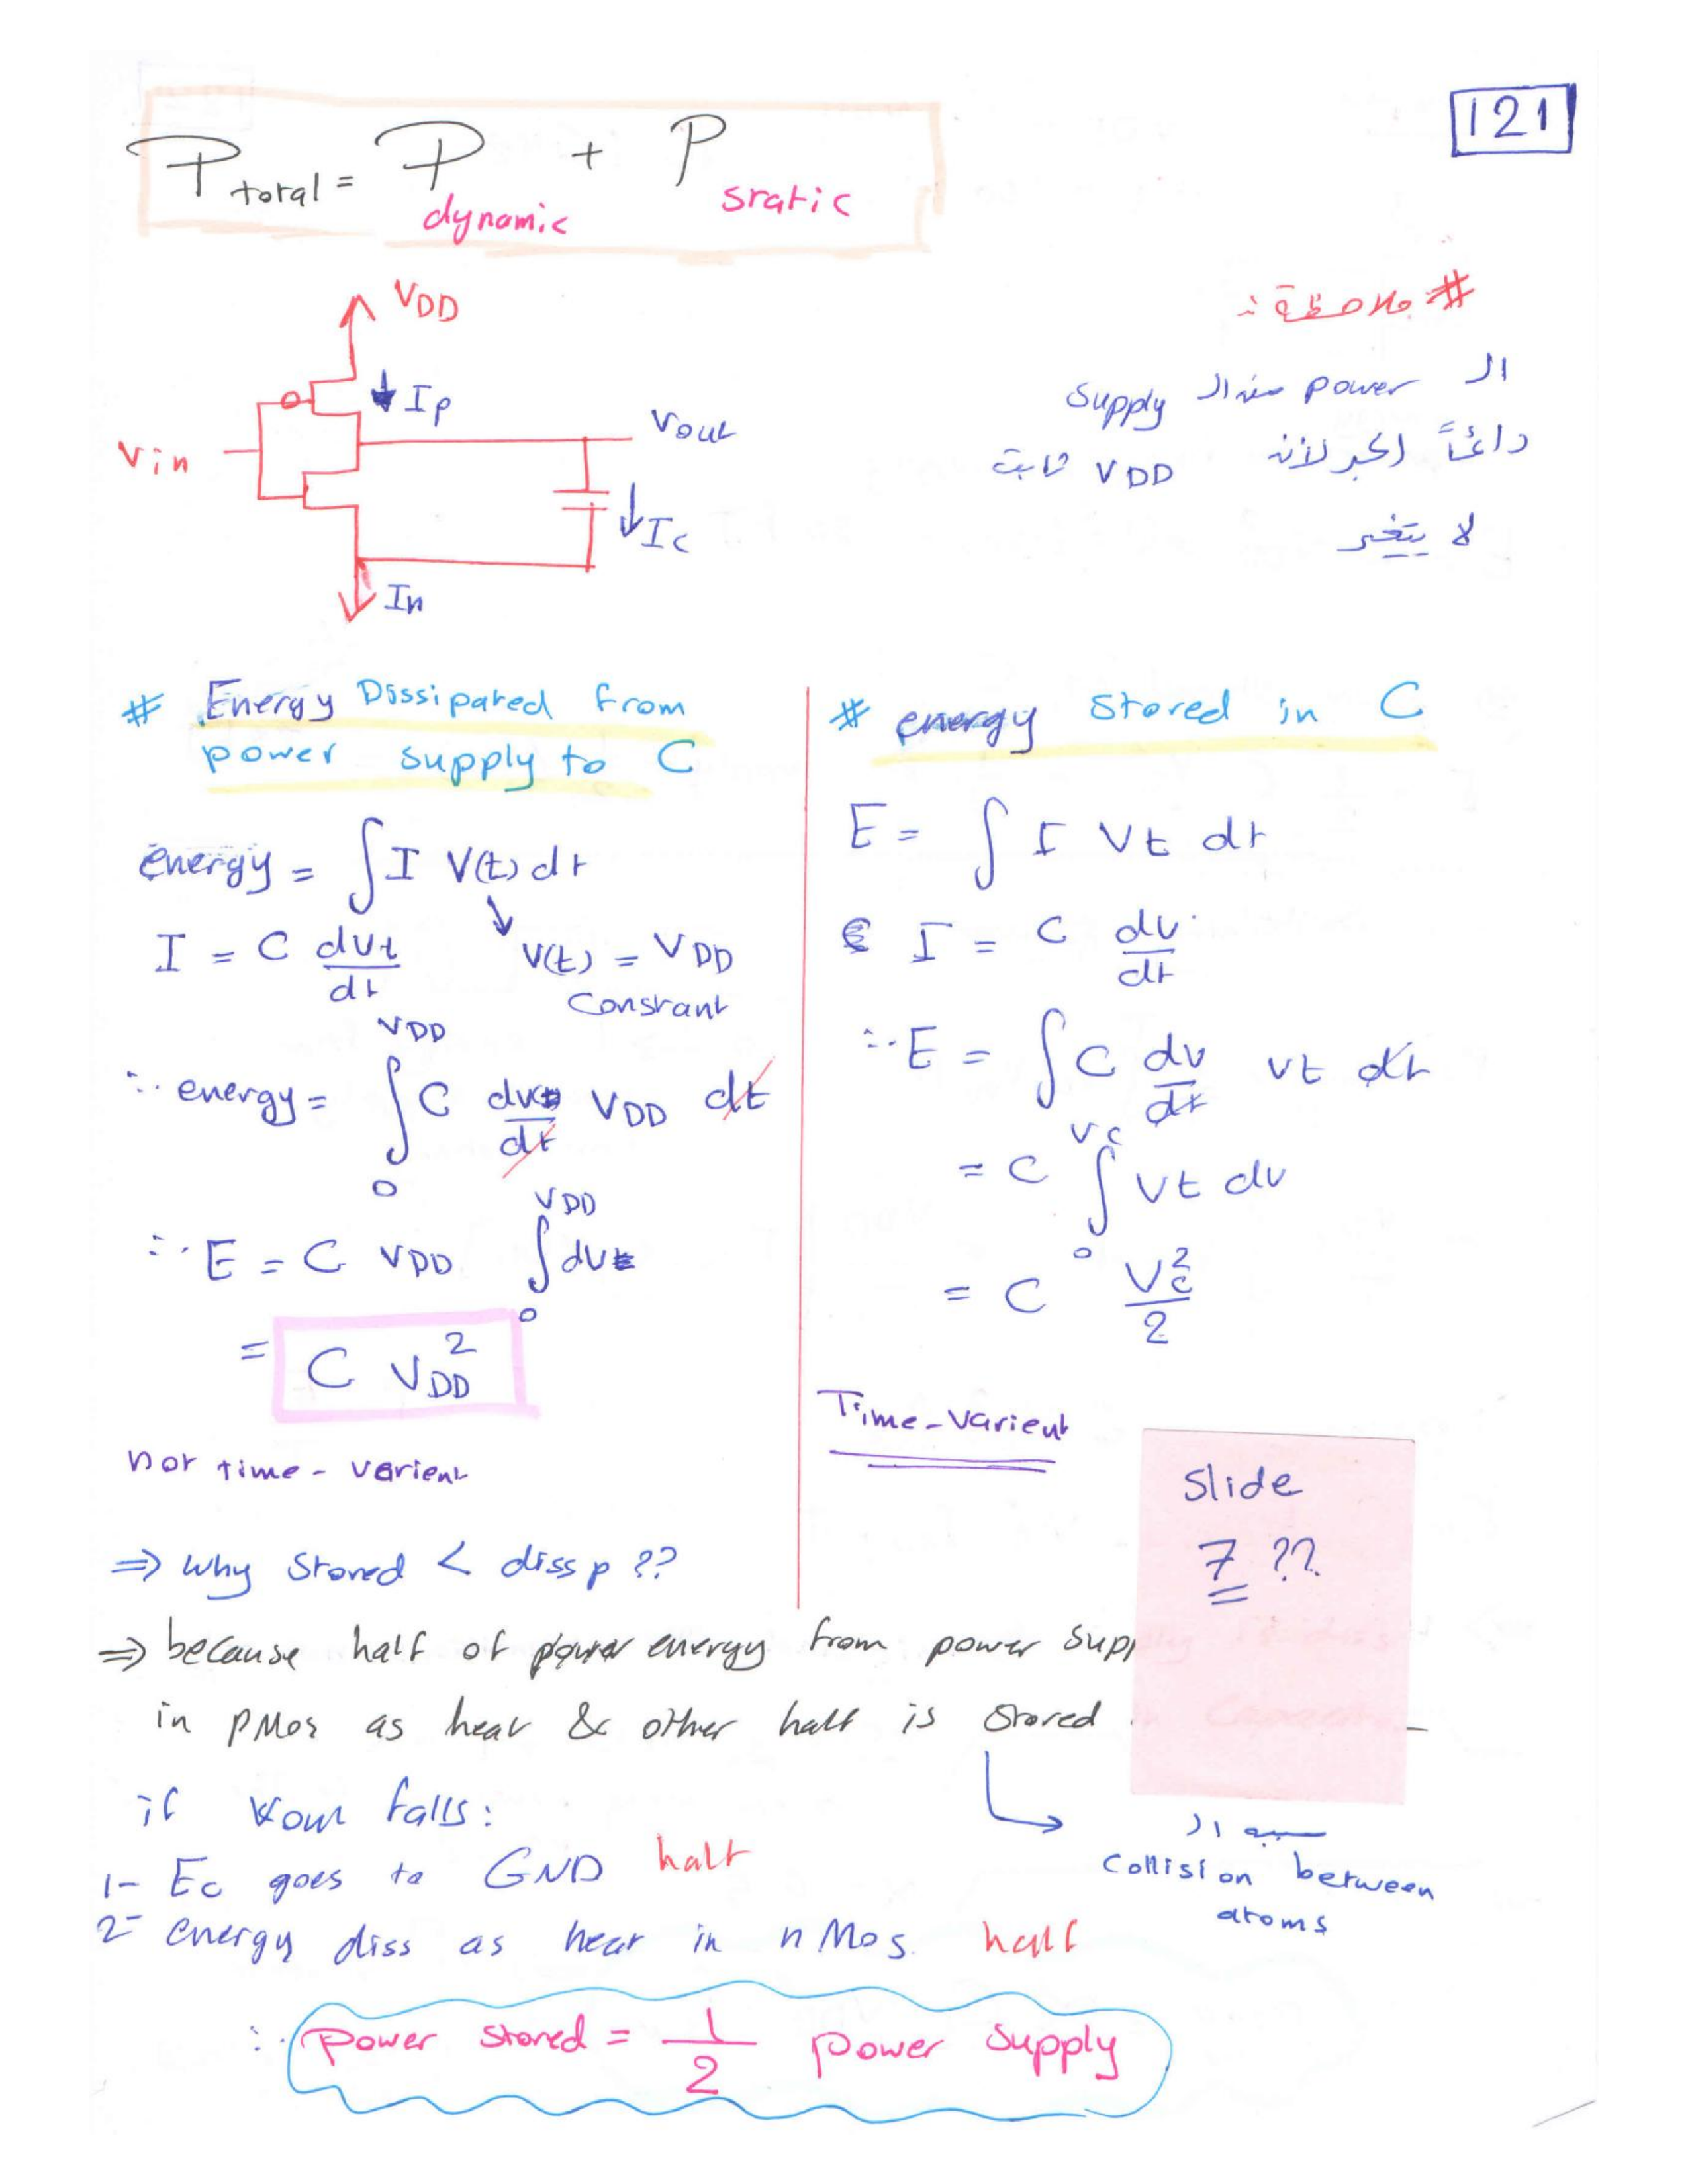 121
P total = P dynamic + P sratic
VDD
Ip
Vin
Vout
Ic
In
# ملاحظة :
ال power من ال supply
دائماً اكبر لأنه VDD ثابت
لا يتغير
# Energy Dissipated from
power supply to C
energy = ∫ I V(t) dt
I = C dVt/dt
V(t) = VDD
Constant
∴ energy = ∫₀^VDD C dvt/dt VDD dt
∴ E = C VDD ∫₀^VDD dvt
= C VDD²
not time - varient
# energy stored in C
E = ∫ I Vt dt
I = C dv/dt
∴ E = ∫ C dv/dt Vt dt
= C ∫₀^Vc Vt dv
= C Vc²/2
Time - varient
Slide
7 ??
⇒ why stored < dissp ??
⇒ because half of power energy from power supp
in pMos as heat & other half is stored
سببه ال
Collision between
atoms
if Vout falls:
1- Ec goes to GND half
2- energy diss as heat in nMos half
∴ power stored = 1/2 power supply